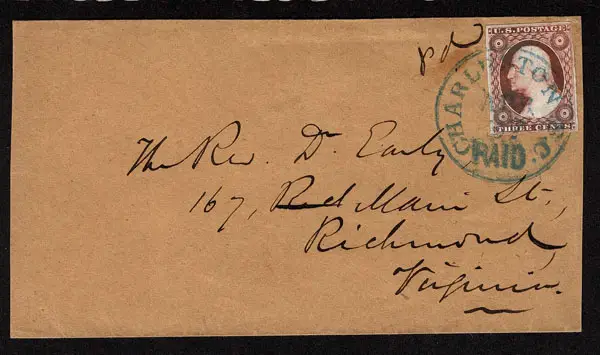 pd
U.S. POSTAGE
THREE CENTS
CHARLESTON
PAID
The Rev. Dr Early
167, Main St.,
Richmond,
Virginia.